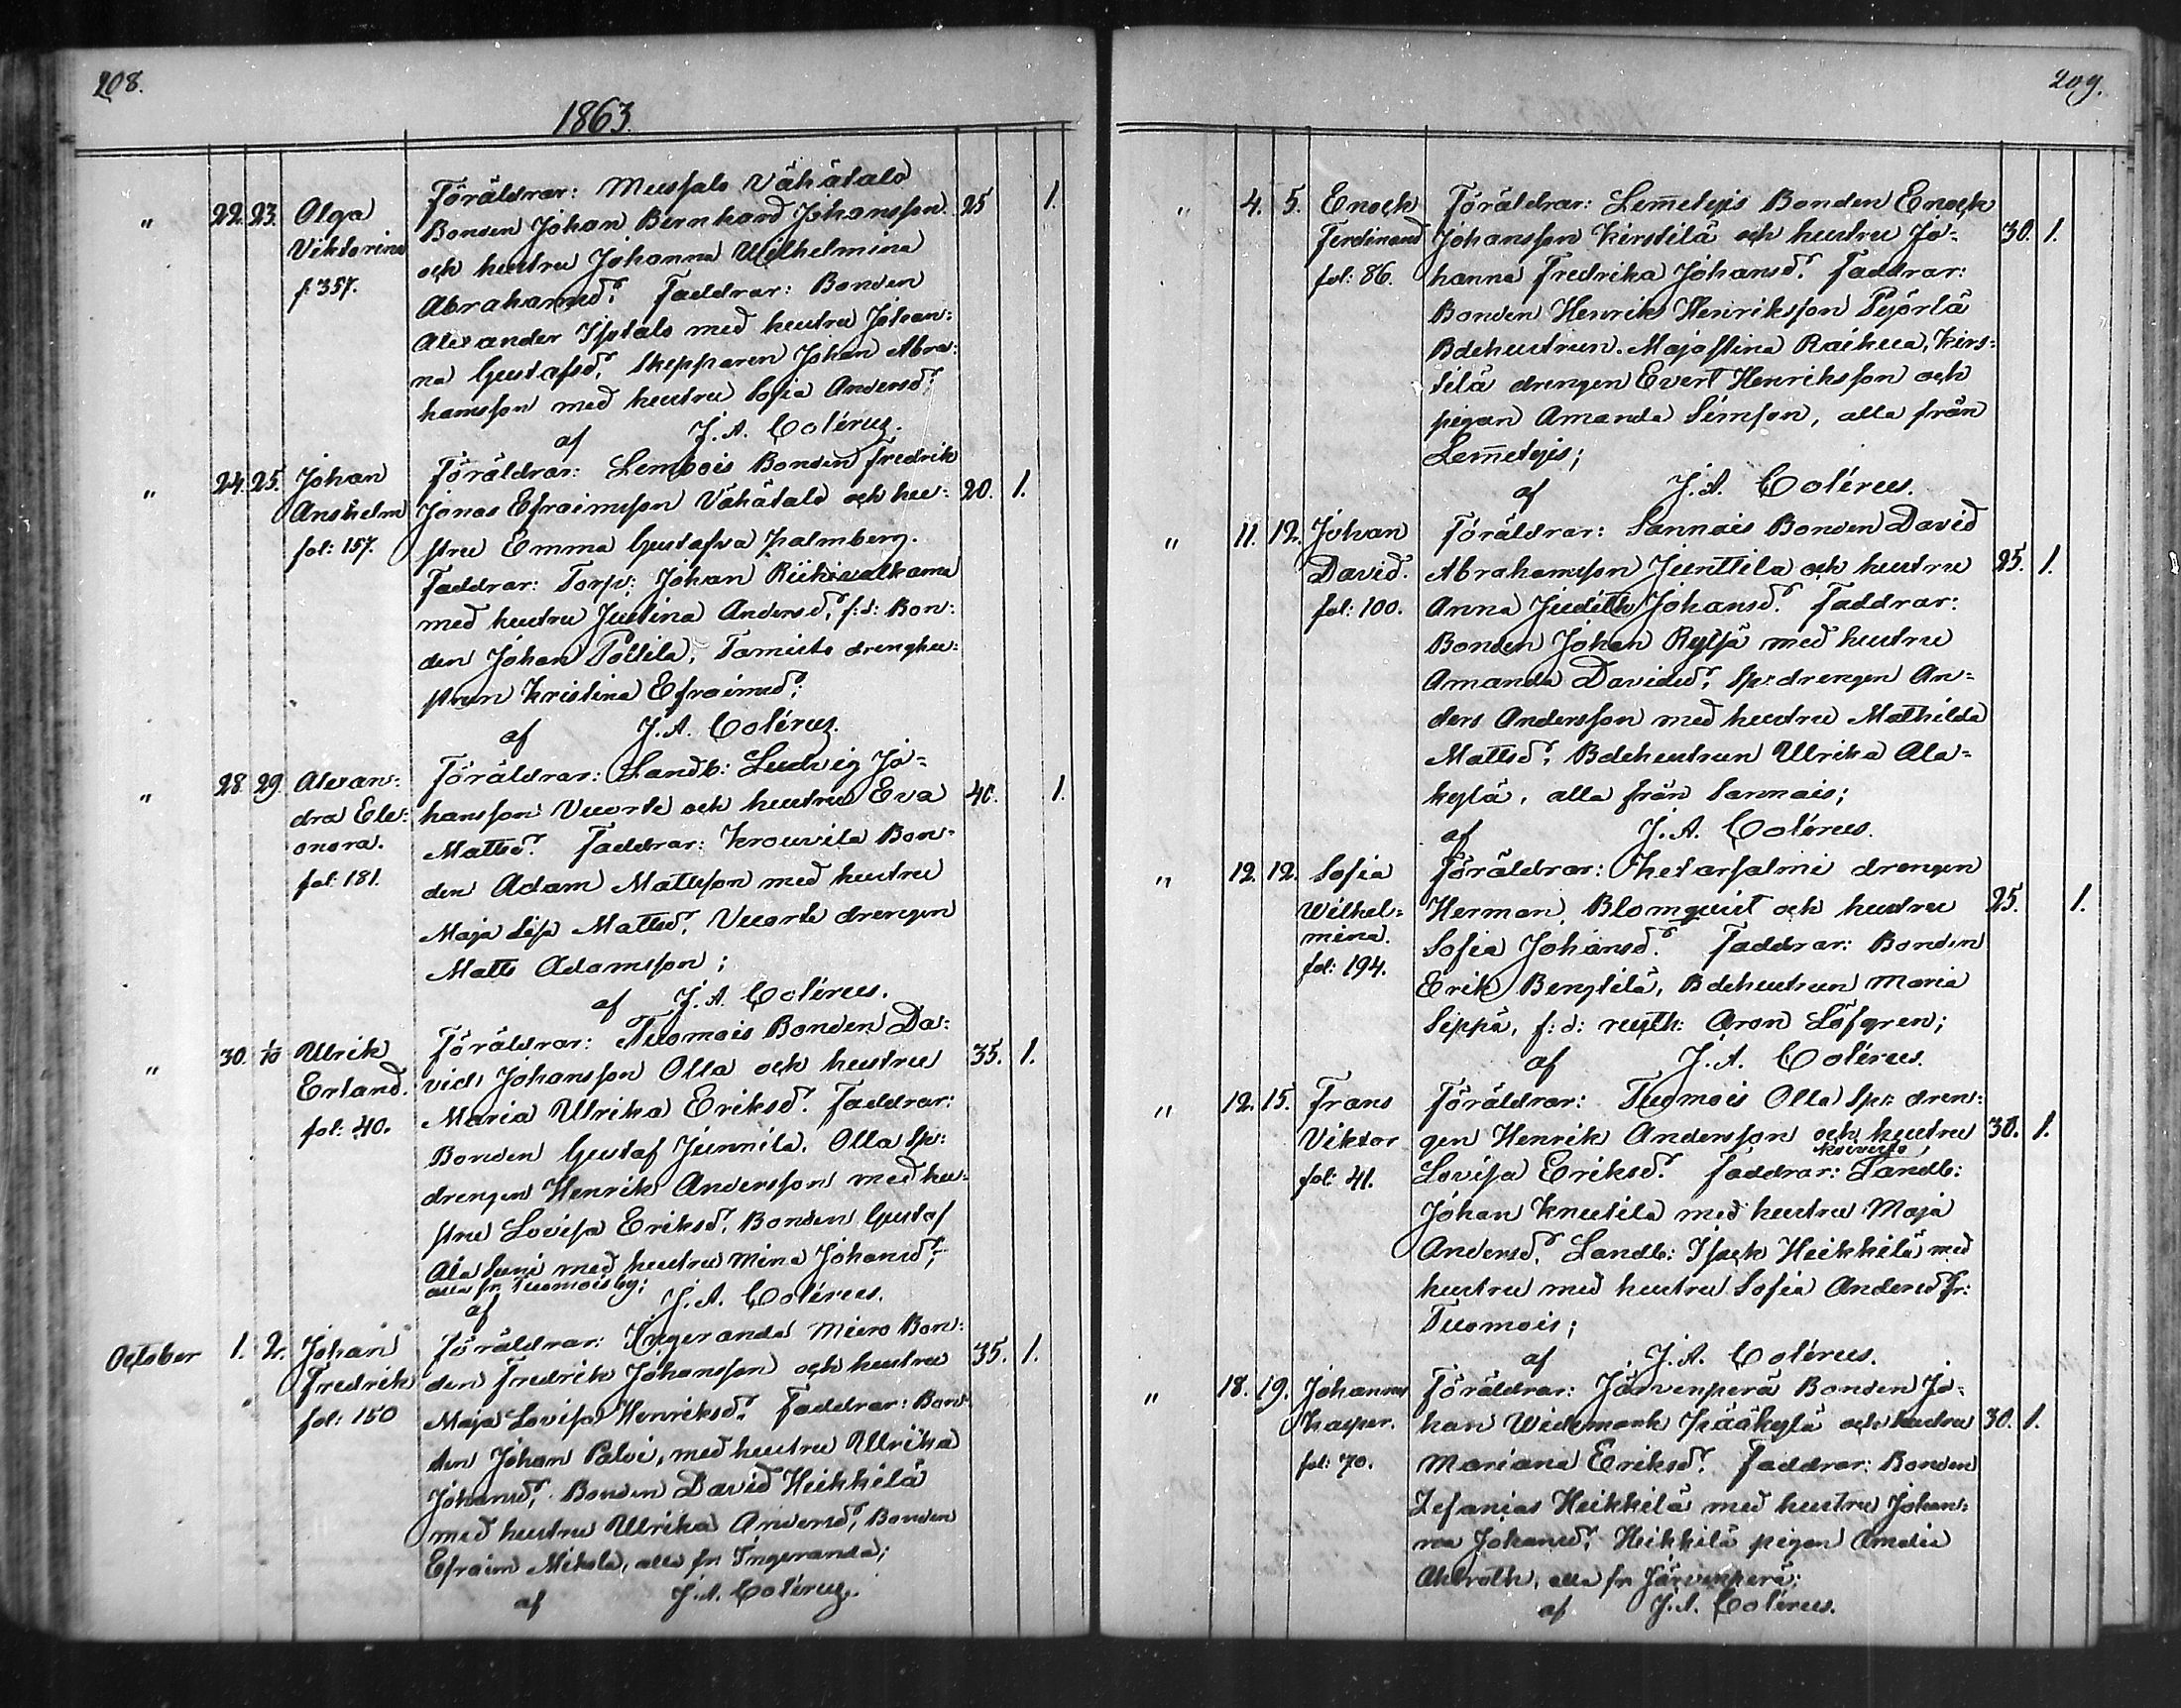 208.
1863.
" 22. 23. Olga Föräldrar: Mussalo Vähätalo
Viktorina Bonden Johan Bernhard Johansson 25 1.
f. 357. och hustru Johanna Wilhelmina
Abrahamsdr. Faddrar: Bonden
Alexander Isotalo med hustru Johan-
na Gustafsdr, Skepparen Johan Abra-
hamsson med hustru Sofia Andersdr;
af J. A. Colérus.
" 24. 25. Johan Föräldrar: Lempois Bonden Fredrik
Anshelm Jonas Efraimsson Vähätalo och hu- 20. 1.
fol: 157. stru Emma Gustafva Palmberg.
Faddrar: Torp: Johan Riihivalkama
med hustru Justina Andersdr, f: d: Bon-
den Johan Pottila, Tamisto drenghu-
strun Kristina Efraimsdr;
af J. A. Colérus.
" 28 29. Alexan- Föräldrar: Landb: Ludvig Jo-
dra Ele- hansson Vuorte och hustru Eva 40. 1.
onora. Mattsdr. Faddrar: Krouvila Bon-
fol: 181. den Adam Mattsson med hustru
Maja Lisa Mattsdr, Vuorte drengen
Matts Adamsson;
af J. A. Colérus.
" 30. 1/10 Ulrik Föräldrar: Tuomois Bonden Da-
Erland. vid Johansson Olla och hustru 35. 1.
fol: 40. Maria Ulrika Eriksdr. Faddrar:
Bonden Gustaf Junnila, Olla Sp:
drengen Henrik Andersson med hu-
stru Lovisa Eriksdr, Bonden Gustaf
Ala Suni med hustru Mina Johansdr,
alla fr. Tuomois by;
af J. A. Colérus.
October 1. 2. Johan Föräldrar: Ingeranda Miero Bon-
Fredrik den Fredrik Johansson och hustru 35. 1.
fol: 150 Maja Lovisa Henriksdr. Faddrar: Bon-
den Johan Palvi, med hustru Ulrika
Johansdr, Bonden David Heikkilä
med hustru Ulrika Andersdr, Bonden
Efraim Mikola, alla fr. Ingeranda;
af J. A. Colérus.
209.
" 4. 5. Enock Föräldrar: Lem̄etyis Bonden Enock
Ferdinand Johansson Kirstilä och hustru Jo- 30. 1.
fol: 86. hanna Fredrika Johansdr. Faddrar:
Bonden Henrik Henriksson Pyörlä
Bdehustrun Majastina Raikua, Kirs-
tilä drengen Evert Henriksson och
pigan Amanda Simson, alla från
Lem̄etyis;
af J. A. Colérus.
" 11. 12. Johan Föräldrar: Sannais Bonden David
David. Abrahamsson Junttila och hustru 25. 1.
fol: 100. Anna Judith Johansdr. Faddrar:
Bonden Johan Rytsä med hustru
Amanda Davidsdr, Sp: drengen An-
ders Andersson med hustru Mathilda
Mattsdr, Bdehustrun Ulrika Ala-
kylä, alla från Sannais;
af J. A. Colérus.
" 12. 12. Sofia Föräldrar: Ihetarsalmi drengen
Wilhel- Herman Blomqvist och hustru 25. 1.
mina. Sofia Johansdr. Faddrar: Bonden
fol: 194. Erik Bengtilä, Bdehustrun Maria
Seppä, f: d: ryth: Aron Löfgren;
af J. A. Colérus.
" 12. 15. Frans Föräldrar: Tuomois Olla Sp: dren-
Viktor gen Henrik Andersson och hustru 30. 1.
fol: 41. Lovisa Eriksdr. Faddrar: Koivisto Landb:
Johan Knutila med hustru Maja
Andersdr, Landb: Isak Heikkilä med
hustru med hustru Sofia Andersdr fr:
Tuomois;
af J. A. Colérus.
" 18. 19. Johannes Föräldrar: Järvenperä Bonden Jo-
Kasper. han Widemark Pääkylä och hustru 30. 1.
fol: 70. Mariana Eriksdr. Faddrar: Bonden
Zefanias Heikkilä med hustru Johan-
na Johansdr, Heikkilä pigan Amalia
Ahlroth, alla fr. Järvenperä;
af J. A. Colérus.